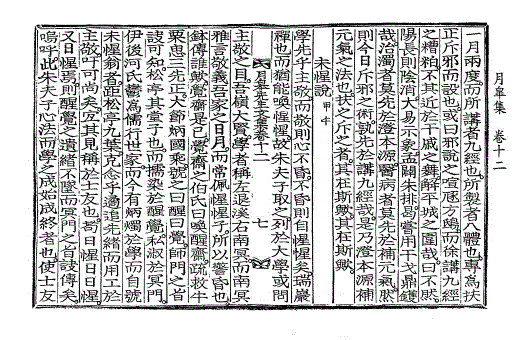 月皐集 卷十二
一月兩度而所講者九經也所製者八體也專爲扶
正斥邪而設也或曰邪說之喧豗方
而徐講九經
之糟粕不其近於干戚之舞解平城之圍哉曰不然
陽長則陰消大易示象孟闢朱排曷嘗用干戈鼎鑊
哉治濁者莫先於澄本源醫病者莫先於補元氣然
則今日斥邪之術孰先於講九經哉是乃澄本源補
元氣之法也扶之斥之者其在斯歟其在斯歟
未惺說 甲午
學先乎主敬而敬則心不昏不昏則自惺惺矣瑞巖
禪也而猶能喚惺惺故朱夫子取之列於大學或問
月皐先生文集卷十二
七
主敬之目吾嶺大賢學者稱左退溪右南冥而南冥
雅言敬義吾家之日月而常佩惺惺子所以警昏也
鉢傳誰歟覺齋是已覺齋之伯氏曰喚醒齋疏救牛
栗思三先正大節炳國乘號之曰醒曰覺師門之旨
訣可知松亭其堂子也而擩染於醒覺私淑於冥門
伊後河氏鬱爲儒行世家而今有炳燭於學而自號
未惺翁者距松亭九葉克念乎過追先緖而用工於
主敬吁可尚矣宜其見稱於士友也
曰惺曰日惺
又日惺焉則醒覺之遺緖不墜而冥門之旨訣傳矣
嗚呼此朱夫子心法而學之成始成終者也使士友